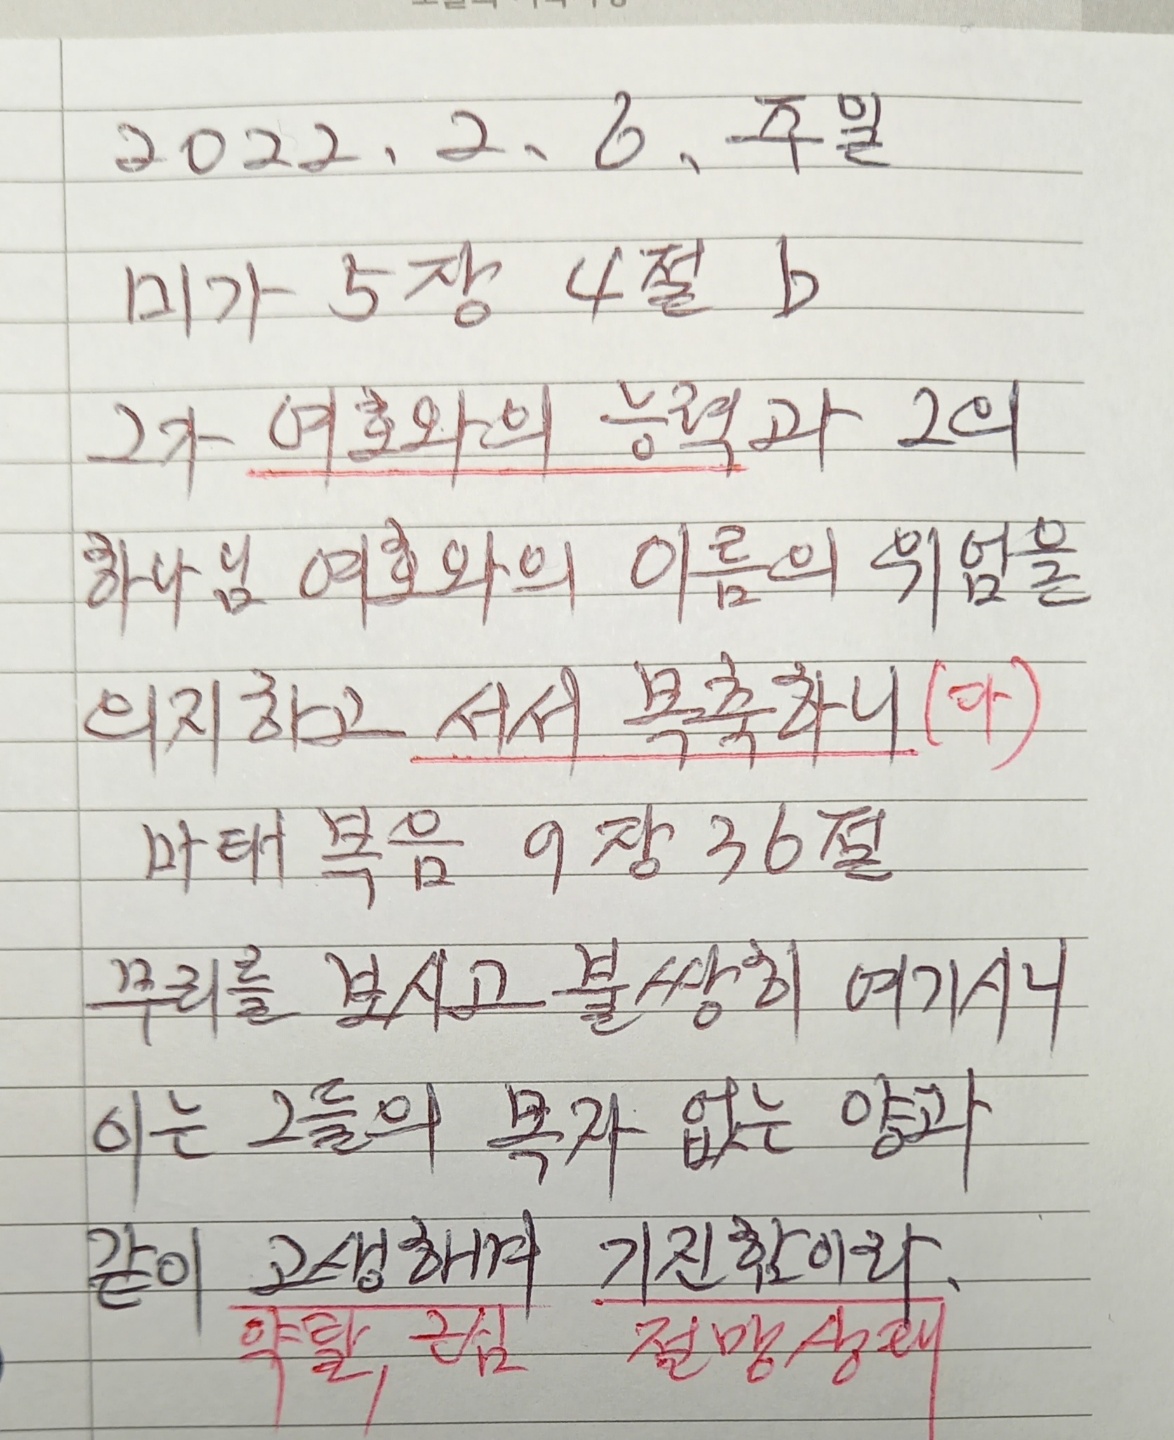 2022. 2. 6. 주일
미가 5장 4절 b
그가 여호와의 능력과 그의
하나님 여호와의 이름의 위엄을
의지하고 서서 목축하니 (다)
마태복음 9장 36절
무리를 보시고 불쌍히 여기시니
이는 그들의 목자 없는 양과
같이 고생하며 기진함이라.
약탈, 근심 절망상태